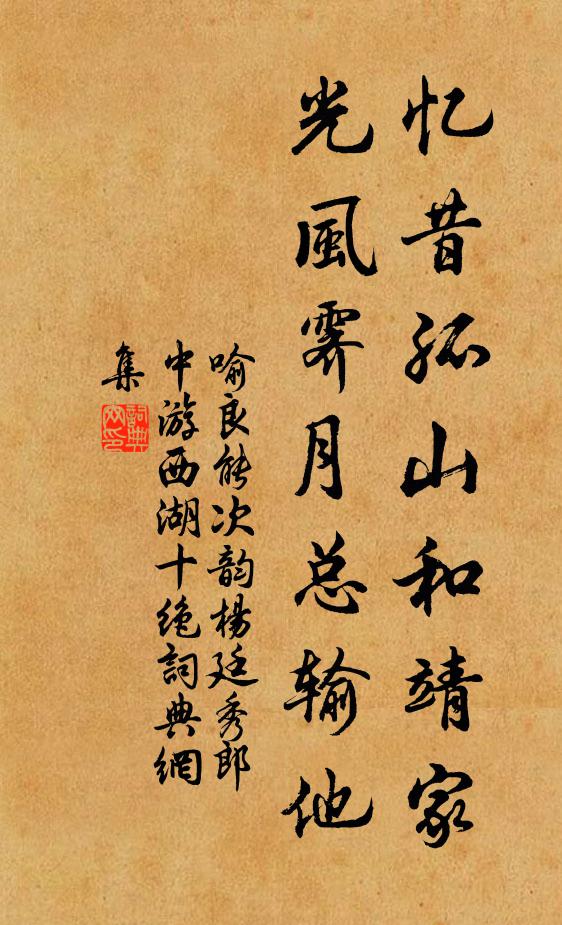 忆昔孤山和靖家
光風霽月总输他
喻良能次韵楊廷秀郎
中游西湖十绝詞典網
集
詞典
网印